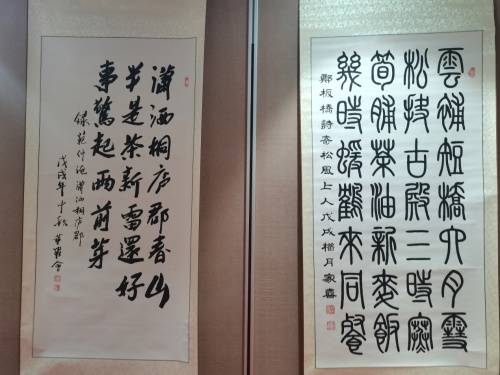 雲補短橋六月雪
松扶古殿三時寒
筍脯茶油新麥飯
幾時來同餐
鄭板橋詩寄松風上人戊戌榴月家喜
瀟洒桐庐郡春山
半是茶新雷還好
事驚起雨前芽
録範仲淹瀟洒桐庐郡
戊戌年中秋